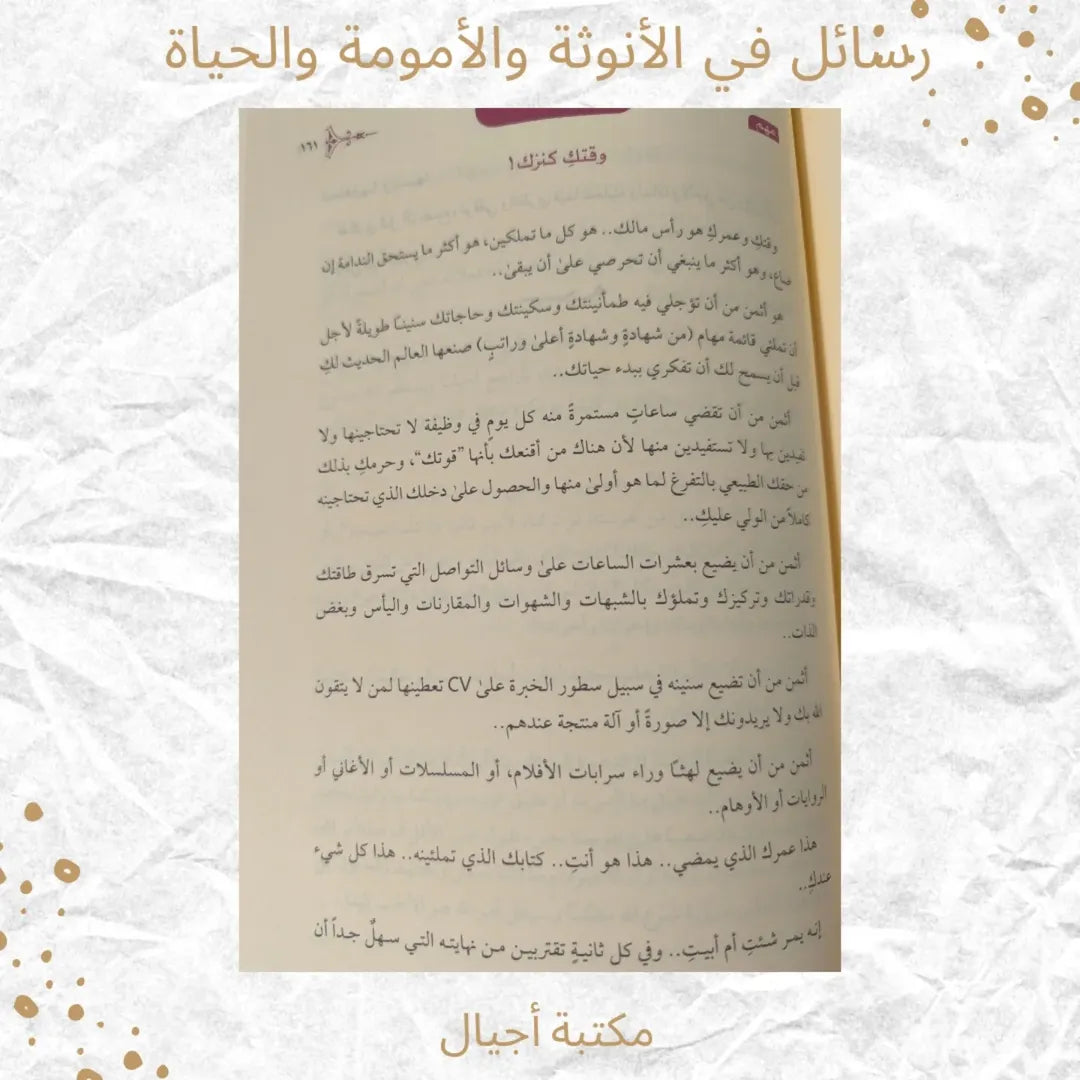 رسائل في الأنوثة والأمومة والحياة
مهم
١٦١
وقتكِ كنزك!
وقتكِ وعمركِ هو رأس مالك.. هو كل ما تملكين، هو أكثر ما يستحق الندامة إن
ضاع، وهو أكثر ما ينبغي أن تحرصي علىٰ أن يبقىٰ..
هو أثمن من أن تؤجلي فيه طمأنينتك وسكينتك وحاجاتك سنينًا طويلةً لأجل
أن تملئي قائمة مهام (من شهادةٍ وشهادةٍ أعلىٰ وراتبٍ) صنعها العالم الحديث لكِ
قبل أن يسمح لك أن تفكري ببدء حياتك..
أثمن من أن تقضي ساعاتٍ مستمرةً منه كل يومٍ في وظيفة لا تحتاجينها ولا
تفيدين بها ولا تستفيدين منها لأن هناك من أقنعك بأنها "قوتك"، وحرمكِ بذلك
من حقك الطبيعي بالتفرغ لما هو أولىٰ منها والحصول علىٰ دخلك الذي تحتاجينه
كاملًا من الولي عليكِ..
أثمن من أن يضيع بعشرات الساعات علىٰ وسائل التواصل التي تسرق طاقتك
وقدراتك وتركيزك وتملؤك بالشبهات والشهوات والمقارنات واليأس وبغض
الذات..
أثمن من أن تضيع سنينه في سبيل سطور الخبرة علىٰ CV تعطينها لمن لا يتقون
الله بك ولا يريدونك إلا صورةً أو آلة منتجة عندهم..
أثمن من أن يضيع لهثًا وراء سرابات الأفلام، أو المسلسلات أو الأغاني أو
الروايات أو الأوهام..
هذا عمرك الذي يمضي.. هذا هو أنتِ.. كتابك الذي تملئينه.. هذا كل شيء
عندكِ..
إنه يمر شئتِ أم أبيتِ.. وفي كل ثانيةٍ تقتربين من نهايته التي سهلٌ جداً أن
مكتبة أجيال